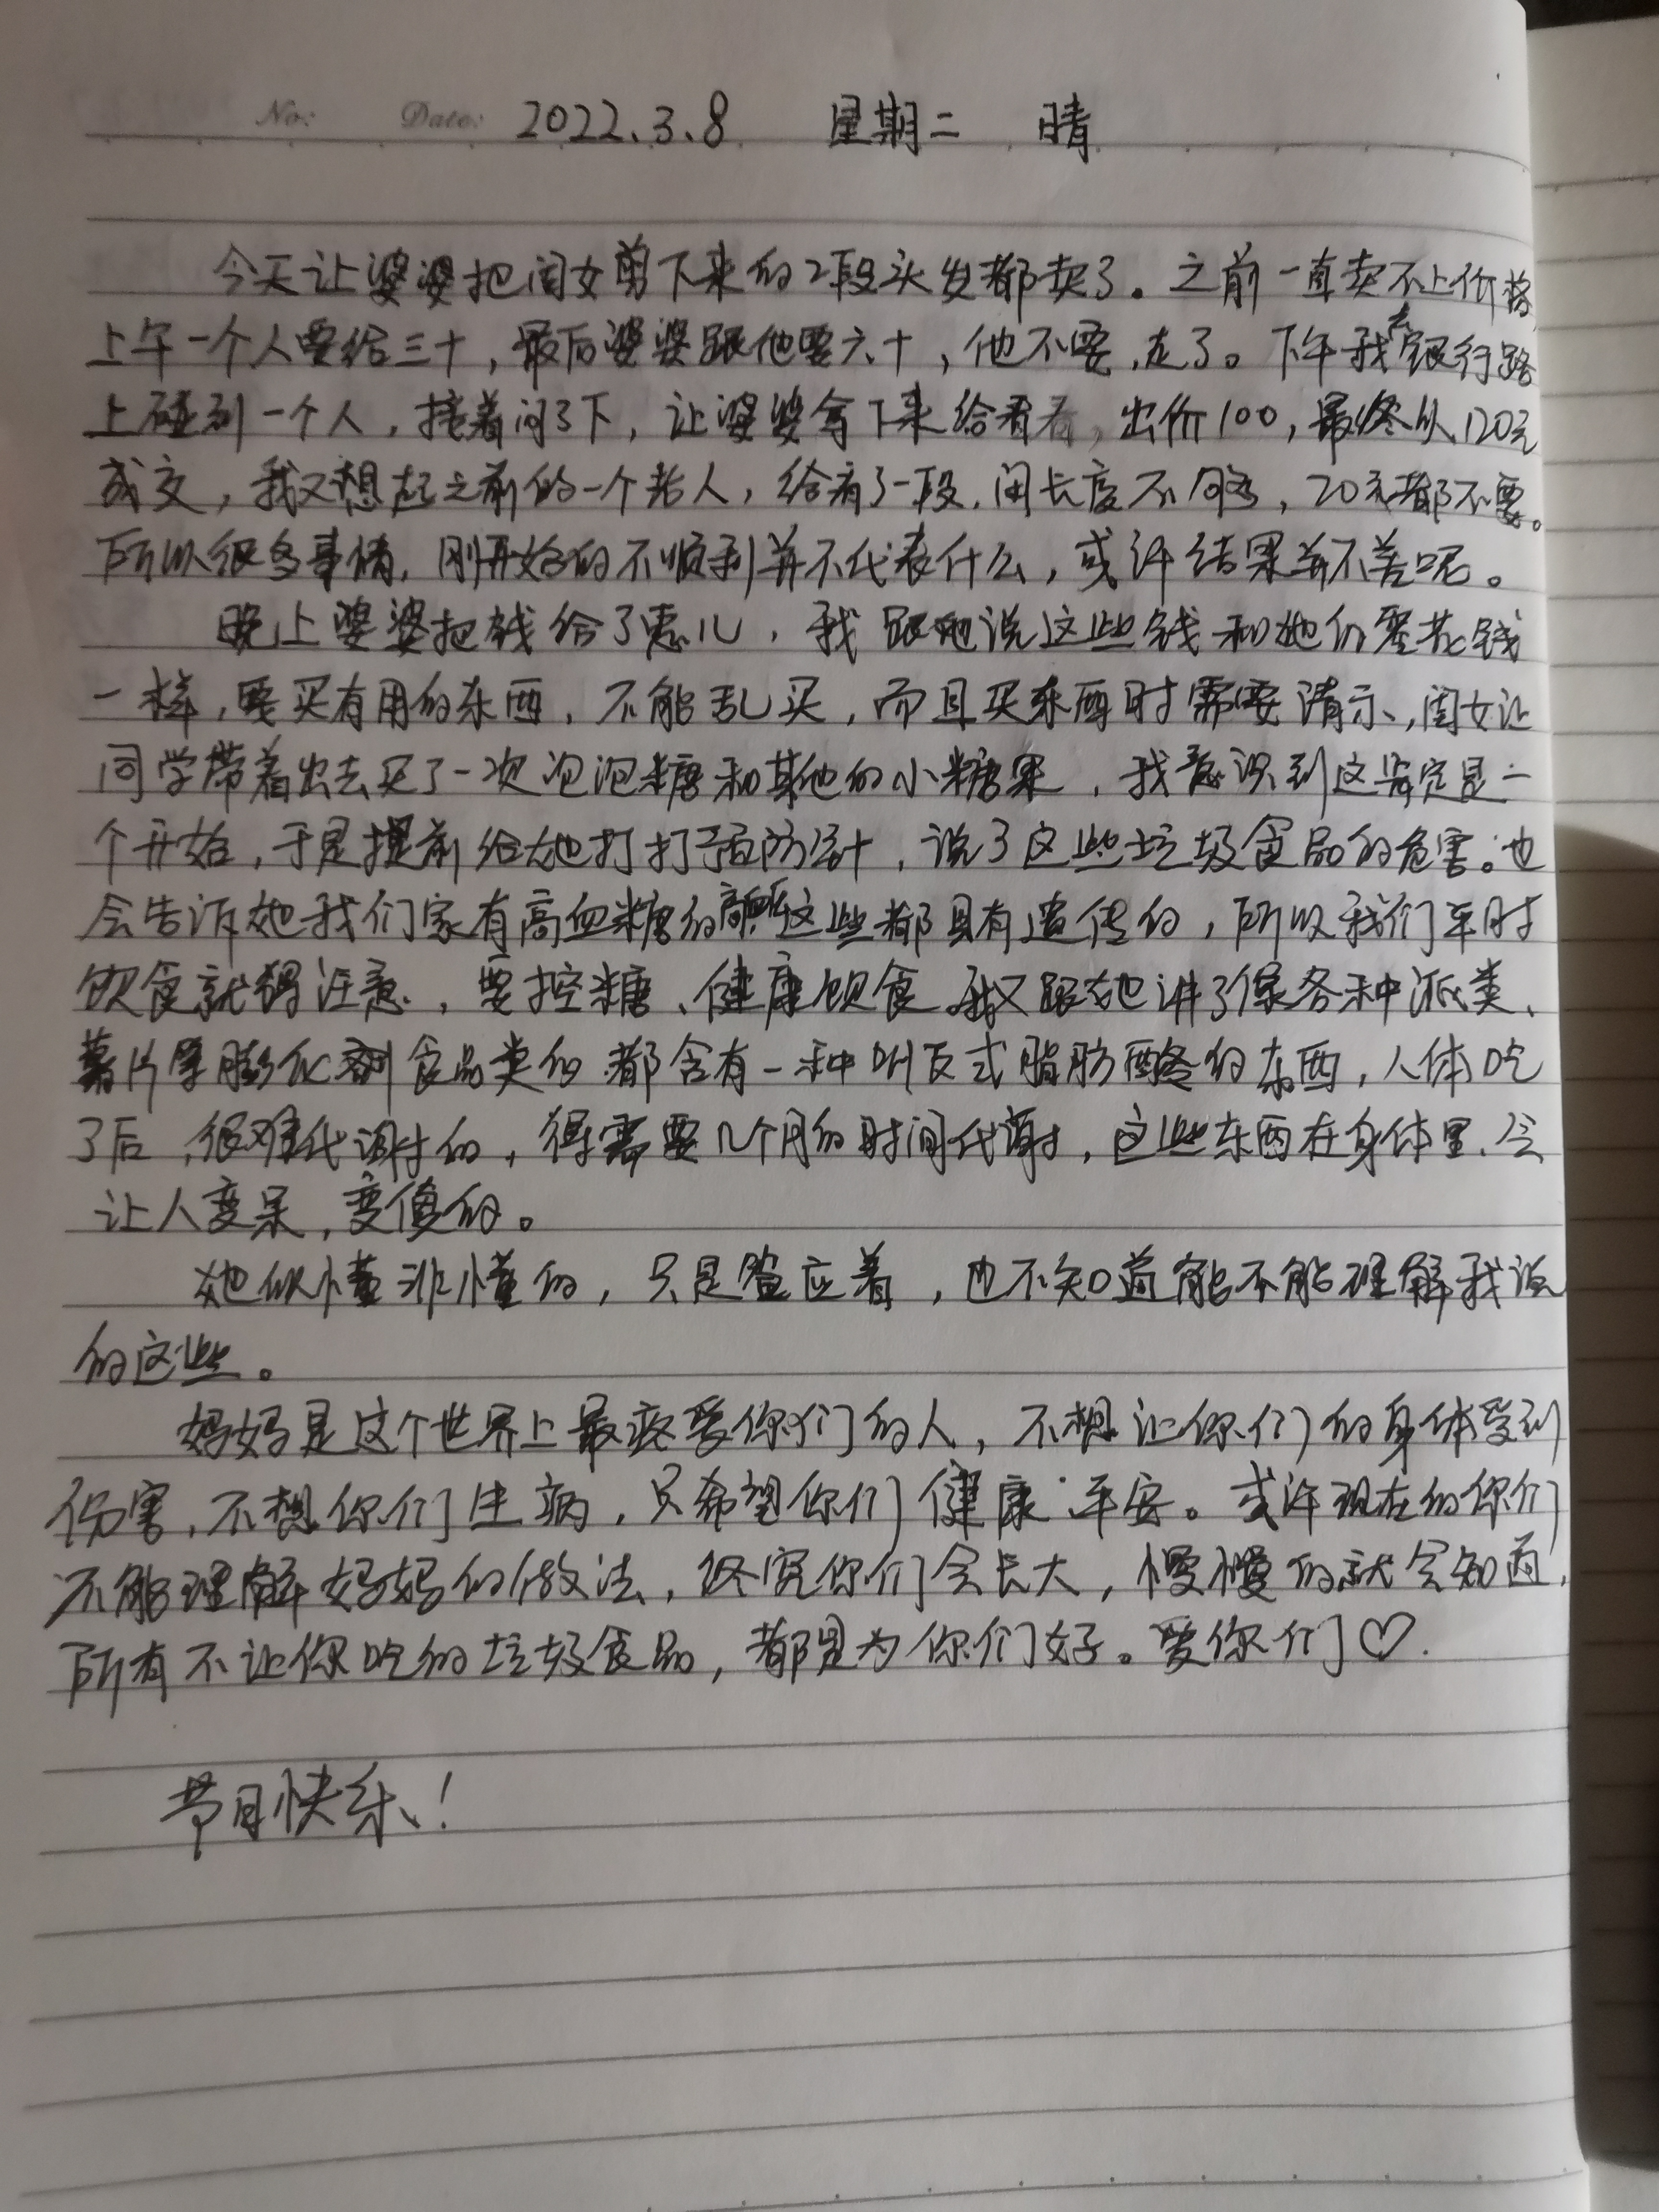 No: Date: 2022.3.8 星期二 晴
今天让婆婆把闺女剪下来的2段头发都卖了。之前一直卖不上价格,
上午一个人要给三十，最后婆婆跟他要六十，他不要,走了。下午我去银行路
上碰到一个人，接着问了下，让婆婆拿下来给看看，出价100，最终以120元
成交，我又想起之前的一个老人，给看了一段,闲长度不够，20元都不要。
所以很多事情,刚开始的不顺利并不代表什么，或许结果并不差呢。
晚上婆婆把钱给了惠儿，我跟她说这些钱和她们零花钱
一样,要买有用的东西,不能乱买，而且买东西时需要请示,闺女让
同学带着出去买了一次泡泡糖和其他的小糖果，我意识到这肯定是一
个开始,于是提前给她打打预防针，说了这些垃圾食品的危害。也
会告诉她我们家有高血糖的高血压这些都具有遗传的，所以我们平时
饮食就得注意，要控糖、健康饮食。我又跟她讲了像各种派类、
薯片等膨化食品类的都含有一种叫反式脂肪酸的东西，人体吃
了后,很难代谢的，得需要几个月的时间代谢，这些东西在身体里,会
让人变呆,变傻的。
她似懂非懂的，只是答应着，也不知道能不能理解我说
的这些。
妈妈是这个世界上最疼爱你们的人，不想让你们的身体受到
伤害,不想你们生病，只希望你们健康平安。或许现在的你们
不能理解妈妈的做法，终究你们会长大，慢慢的就会知道,
所有不让你吃的垃圾食品，都是为你们好。爱你们♡.
节日快乐!